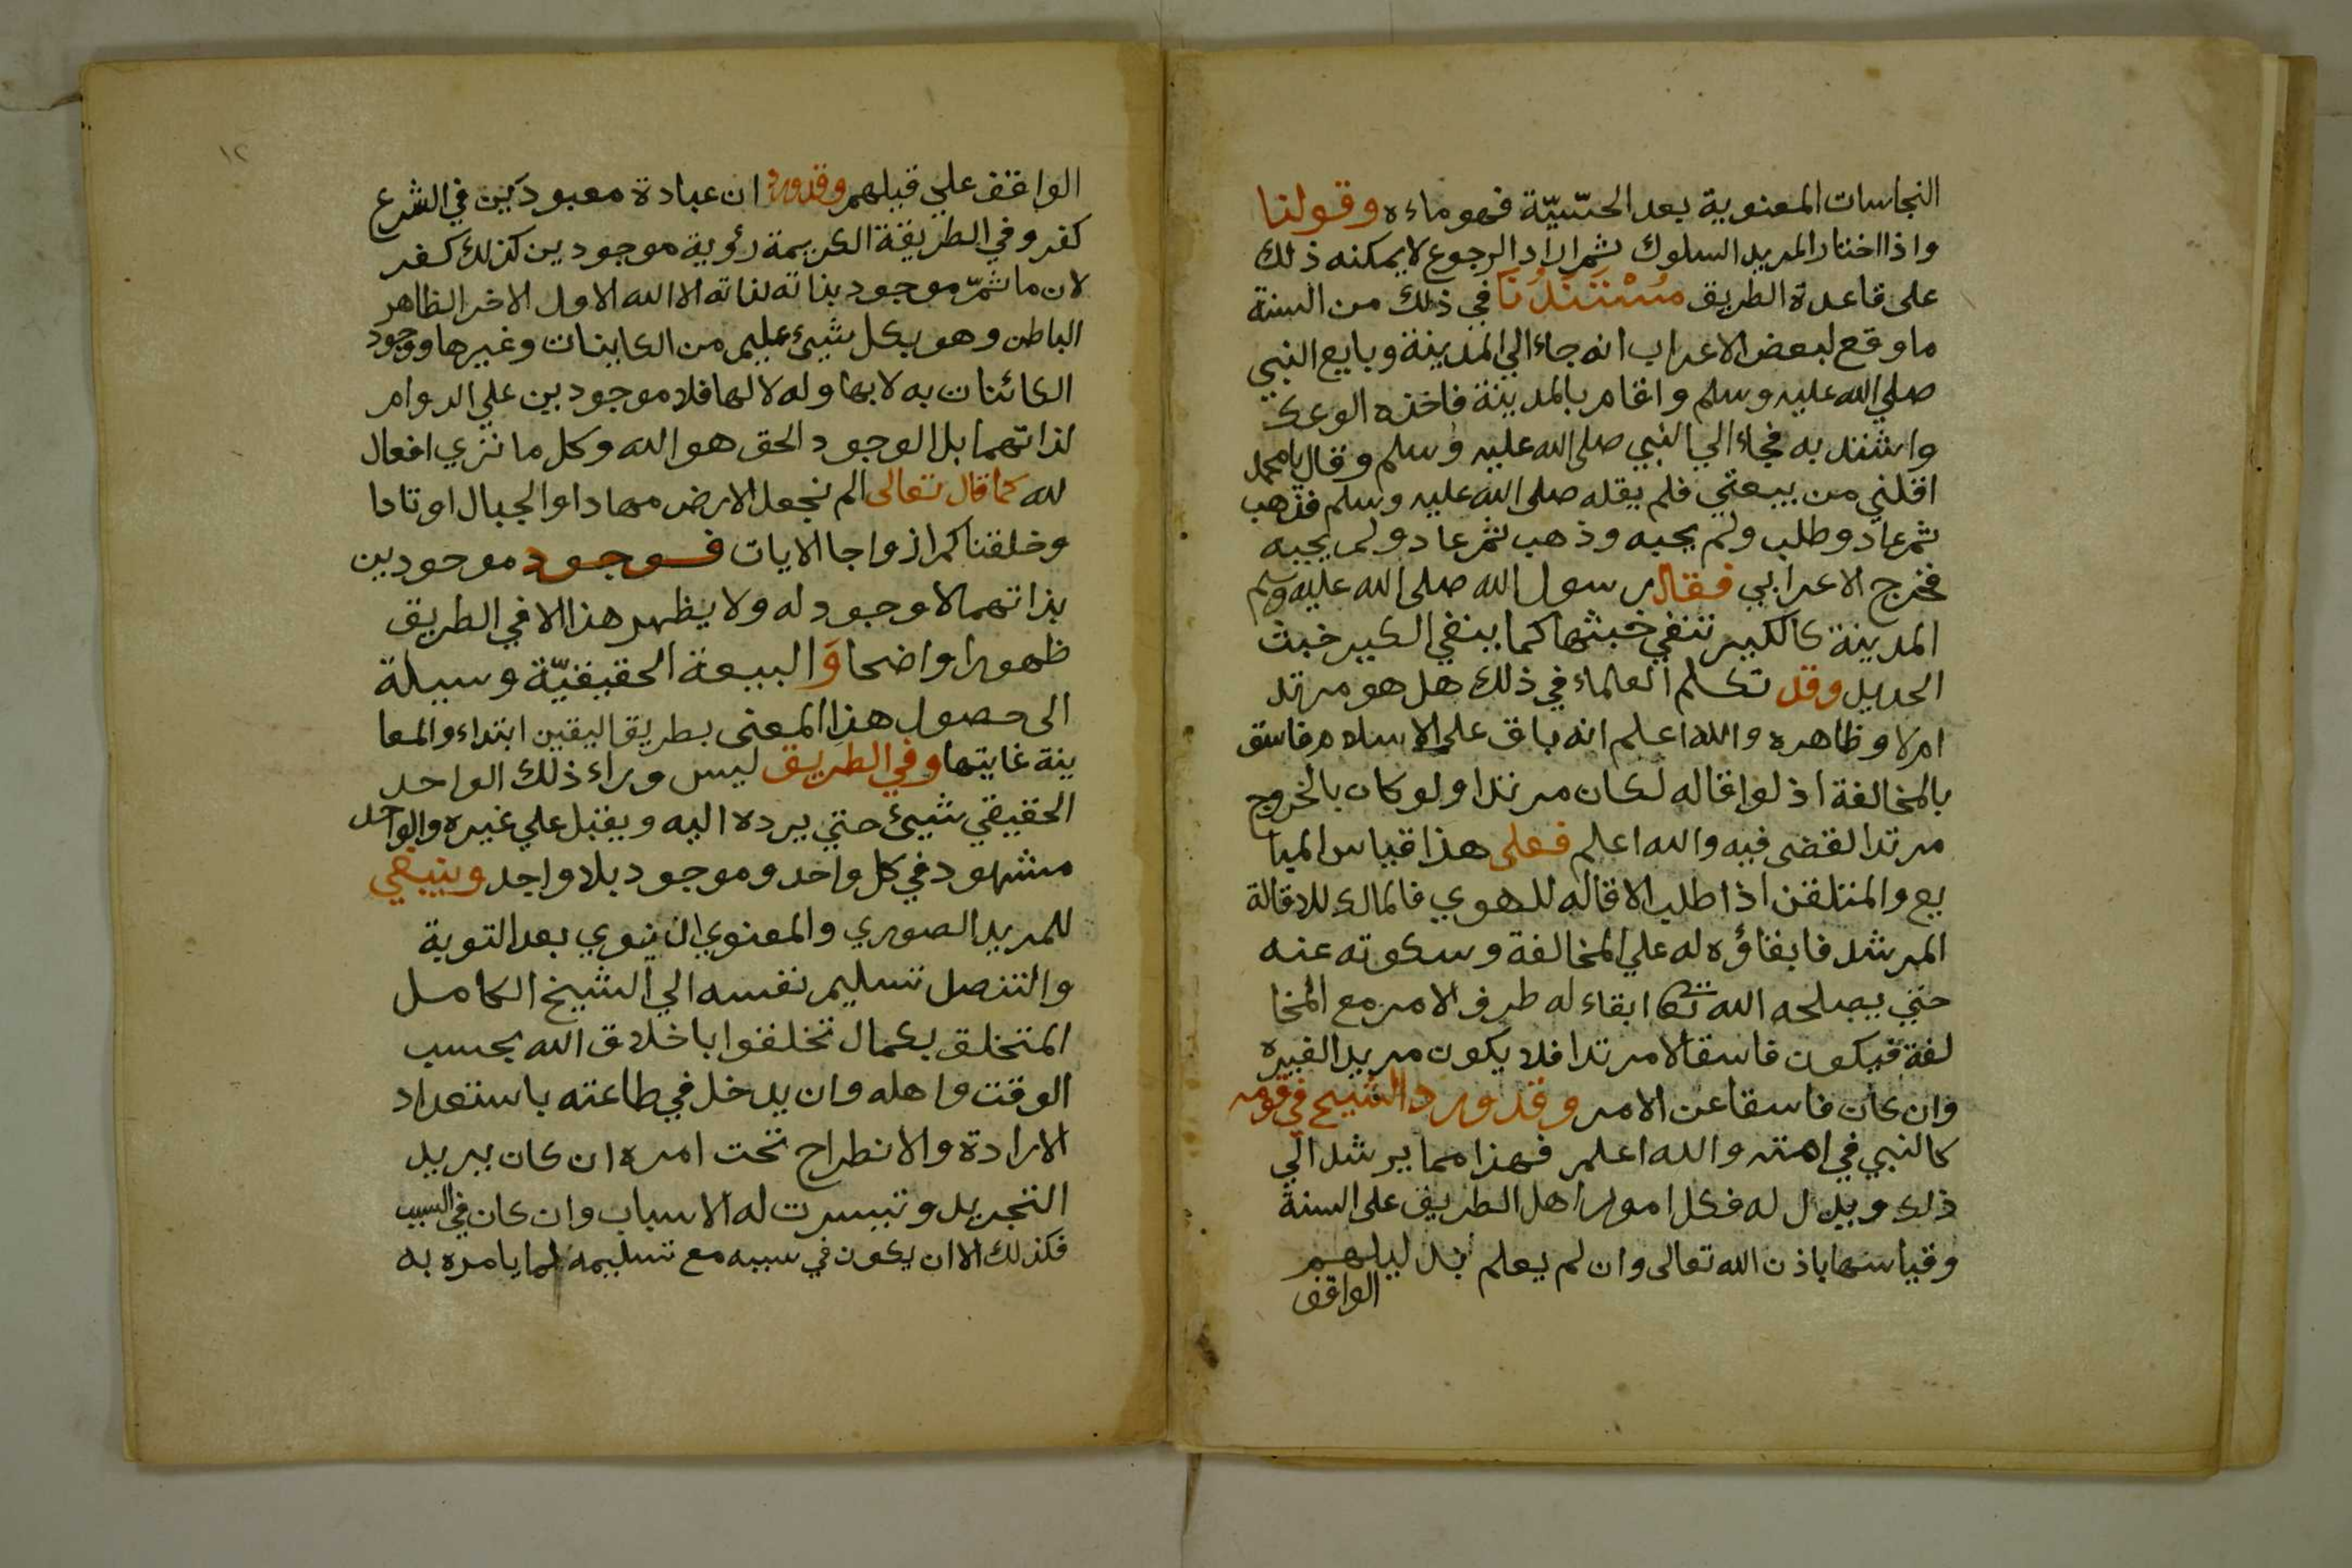 النجاسات المعنوية بعد الحسّيّة فهو ماءه وقولنا
واذا اختار المريد السلوك ثم اراد الرجوع لا يمكنه ذلك
على قاعدة الطريق مُسْتَنَدُنَا في ذلك من السنة
ما وقع لبعض الاعراب انه جاء الي المدينة وبايع النبي
صلي الله عليه وسلم واقام بالمدينة فاخذه الوعك
واشتد به فجاء الي النبي صلى الله عليه وسلم وقال يا محمد
اقلني من بيعتي فلم يقله صلى الله عليه وسلم فذهب
ثم عاد وطلب ولم يجبه وذهب ثم عاد ولم يجبه
فخرج الاعرابي فقال رسول الله صلى الله عليه وسلم
المدينة كالكير تنفي خبثها كما ينفي الكير خبث
الحديد وقد تكلم العلماء في ذلك هل هو مرتد
ام لا وظاهره والله اعلم انه باق على الاسلام فاسق
بالمخالفة اذ لو اقاله لكان مرتدا ولو كان بالخروج
مرتدا لقضى فيه والله اعلم فعلى هذا قياس المبا
يع والمتلقن اذا طلب الاقاله للهوي فالمالك للاقالة
المرشد فابقاؤه له علي المخالفة وسكوته عنه
حتي يصلحه الله تعا ابقاء له طرف الامر مع المخا
لفة فيكون فاسقا لا مرتدا فلا يكون مريدا لغيره
وان كان فاسقا عن الامر وقد ورد الشيخ في قومه
كالنبي في امته والله اعلم فهذا مما يرشد الي
ذلك ويدل له فكل امور اهل الطريق على السنة
وقياسها باذن الله تعالى وان لم يعلم بدليلهم
الواقف
١٢
الواقف علي قبلهم وقد ورد ان عبادة معبودَين في الشرع
كفر وفي الطريقة الكريمة رؤية موجودين كذلك كفر
لان ما ثمّ موجود بذاته لذاته الا الله الاول الاخر الظاهر
الباطن وهو بكل شيئ عليم من الكاينات وغيرها ووجود
الكائنات به لا بها وله لا لها فلا موجودين علي الدوام
لذاتهما بل الوجود الحق هو الله وكل ما نري افعال
لله كما قال تعالى الم نجعل الارض مهادا والجبال اوتادا
وخلقناكم ازواجا الايات فوجود موجودين
بذاتهما لا وجود له ولا يظهر هذا الا في الطريق
ظهورا واضحا وَالبيعة الحقيقيّة وسيلة
الى حصول هذا المعنى بطريق اليقين ابتداء والمعا
ينة غايتها وفي الطريق ليس وراء ذلك الواحد
الحقيقي شيئ حتي يرده اليه ويقبل علي غيره والواحد
مشهود في كل واحد وموجود بلا واجد وينبغي
للمريد الصوري والمعنوي ان ينوي بعد التوبة
والتنصل تسليم نفسه الي الشيخ الكامل
المتخلق بكمال تخلقوا باخلاق الله بحسب
الوقت واهله وان يدخل في طاعته باستعداد
الارادة والانطراح تحت امره ان كان يريد
التجريد وتيسرت له الاسباب وان كان في السبب
فكذلك الا ان يكون في سببه مع تسليمه لما يامره به